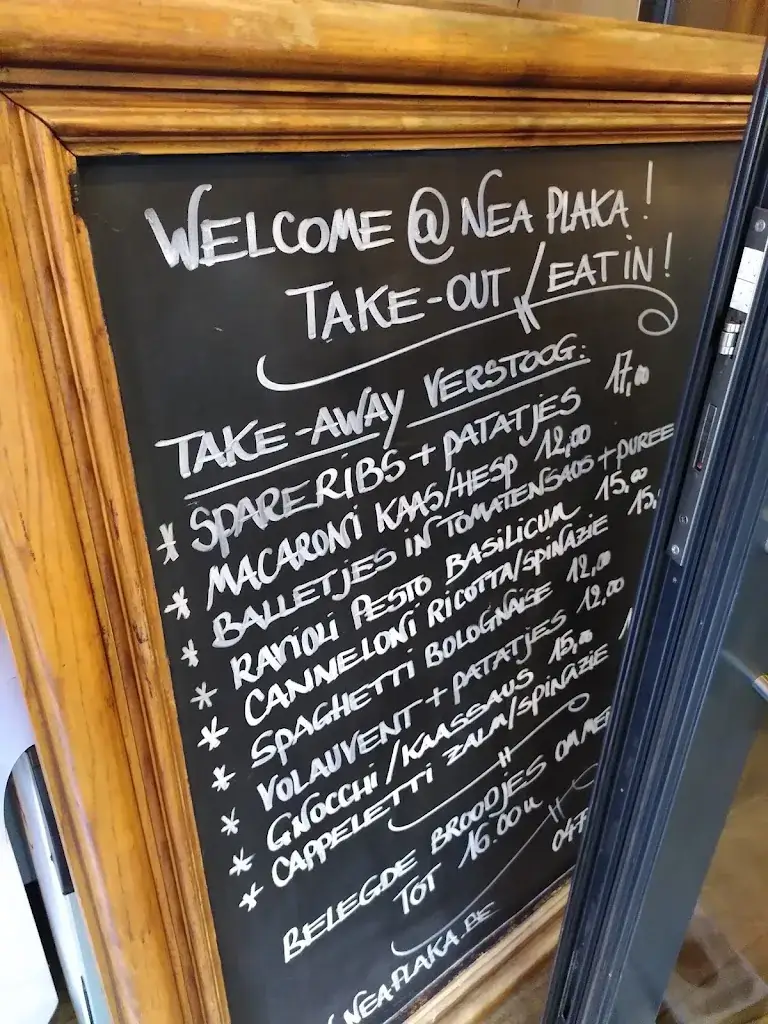 WELCOME @ NEA PLAKA!
TAKE-OUT / EAT IN!
TAKE-AWAY VERSTOOG:
* SPARERIBS + PATATJES 17,00
* MACARONI KAAS/HESP 12,00
* BALLETJES IN TOMATENSAUS + PUREE
* RAVIOLI PESTO BASILICUM 15,00
* CANNELONI RICOTTA/SPINAZIE 15,
* SPAGHETTI BOLOGNAISE 12,00
* VOLAUVENT + PATATJES 12,00
* GNOCCHI/KAASSAUS 15,00
* CAPPELETTI ZALM/SPINAZIE 1
BELEGDE BROODJES OM MEE
TOT 16.00U
047
.NEAPLAKA.BE